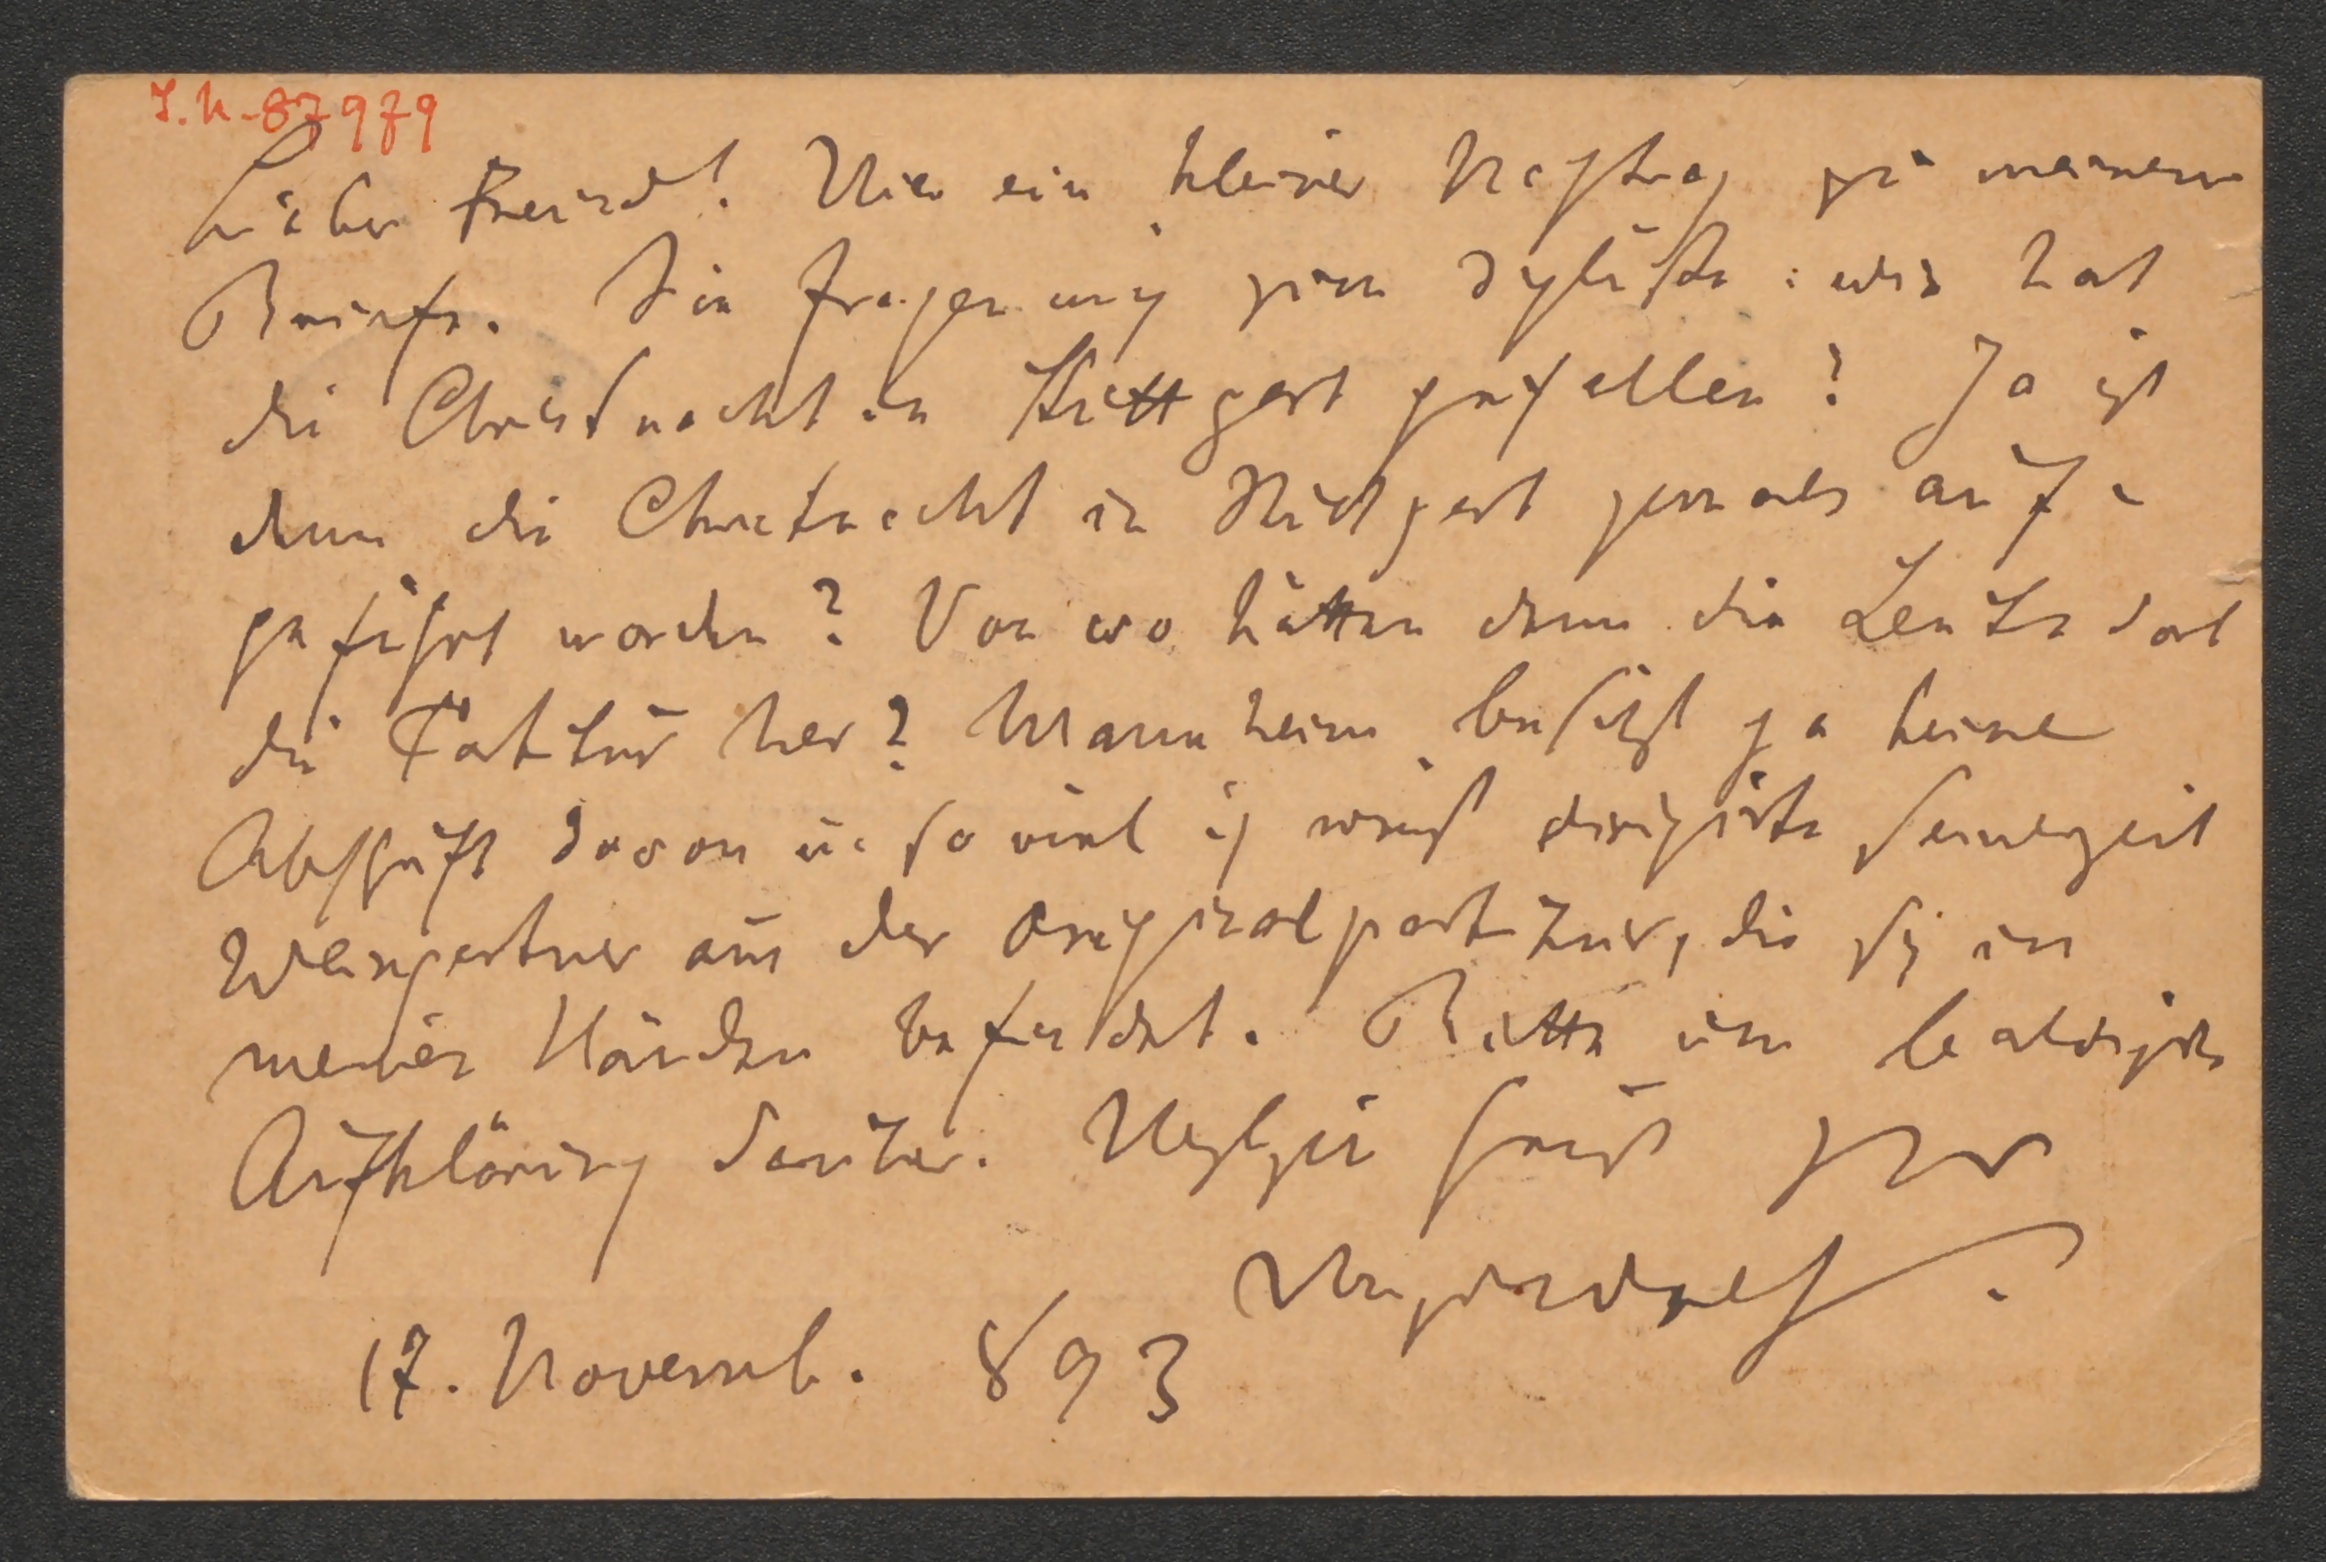 I.N-87979
Lieber Freund! Hier ein kleiner Nachtrag zu meinem
Briefe. Sie fragen mich zum Schluße: wie hat
die Christnacht in Stuttgart gefallen? Ja ist
denn die Christnacht in Stuttgart jemals auf-
geführt worden? Von wo hätten denn die Leute dort
die Partitur her? Mannheim besitzt ja keine
Abschrift davon u. so viel ich weiß dirigirte seinerzeit
Weingartner aus der Originalpartitur, die sich in
meinen Händen befindet. Bitte um baldigste
Aufklärung darüber. Herzlich grüßt Ihr
Hugo Wolf.
17. Novemb. 893